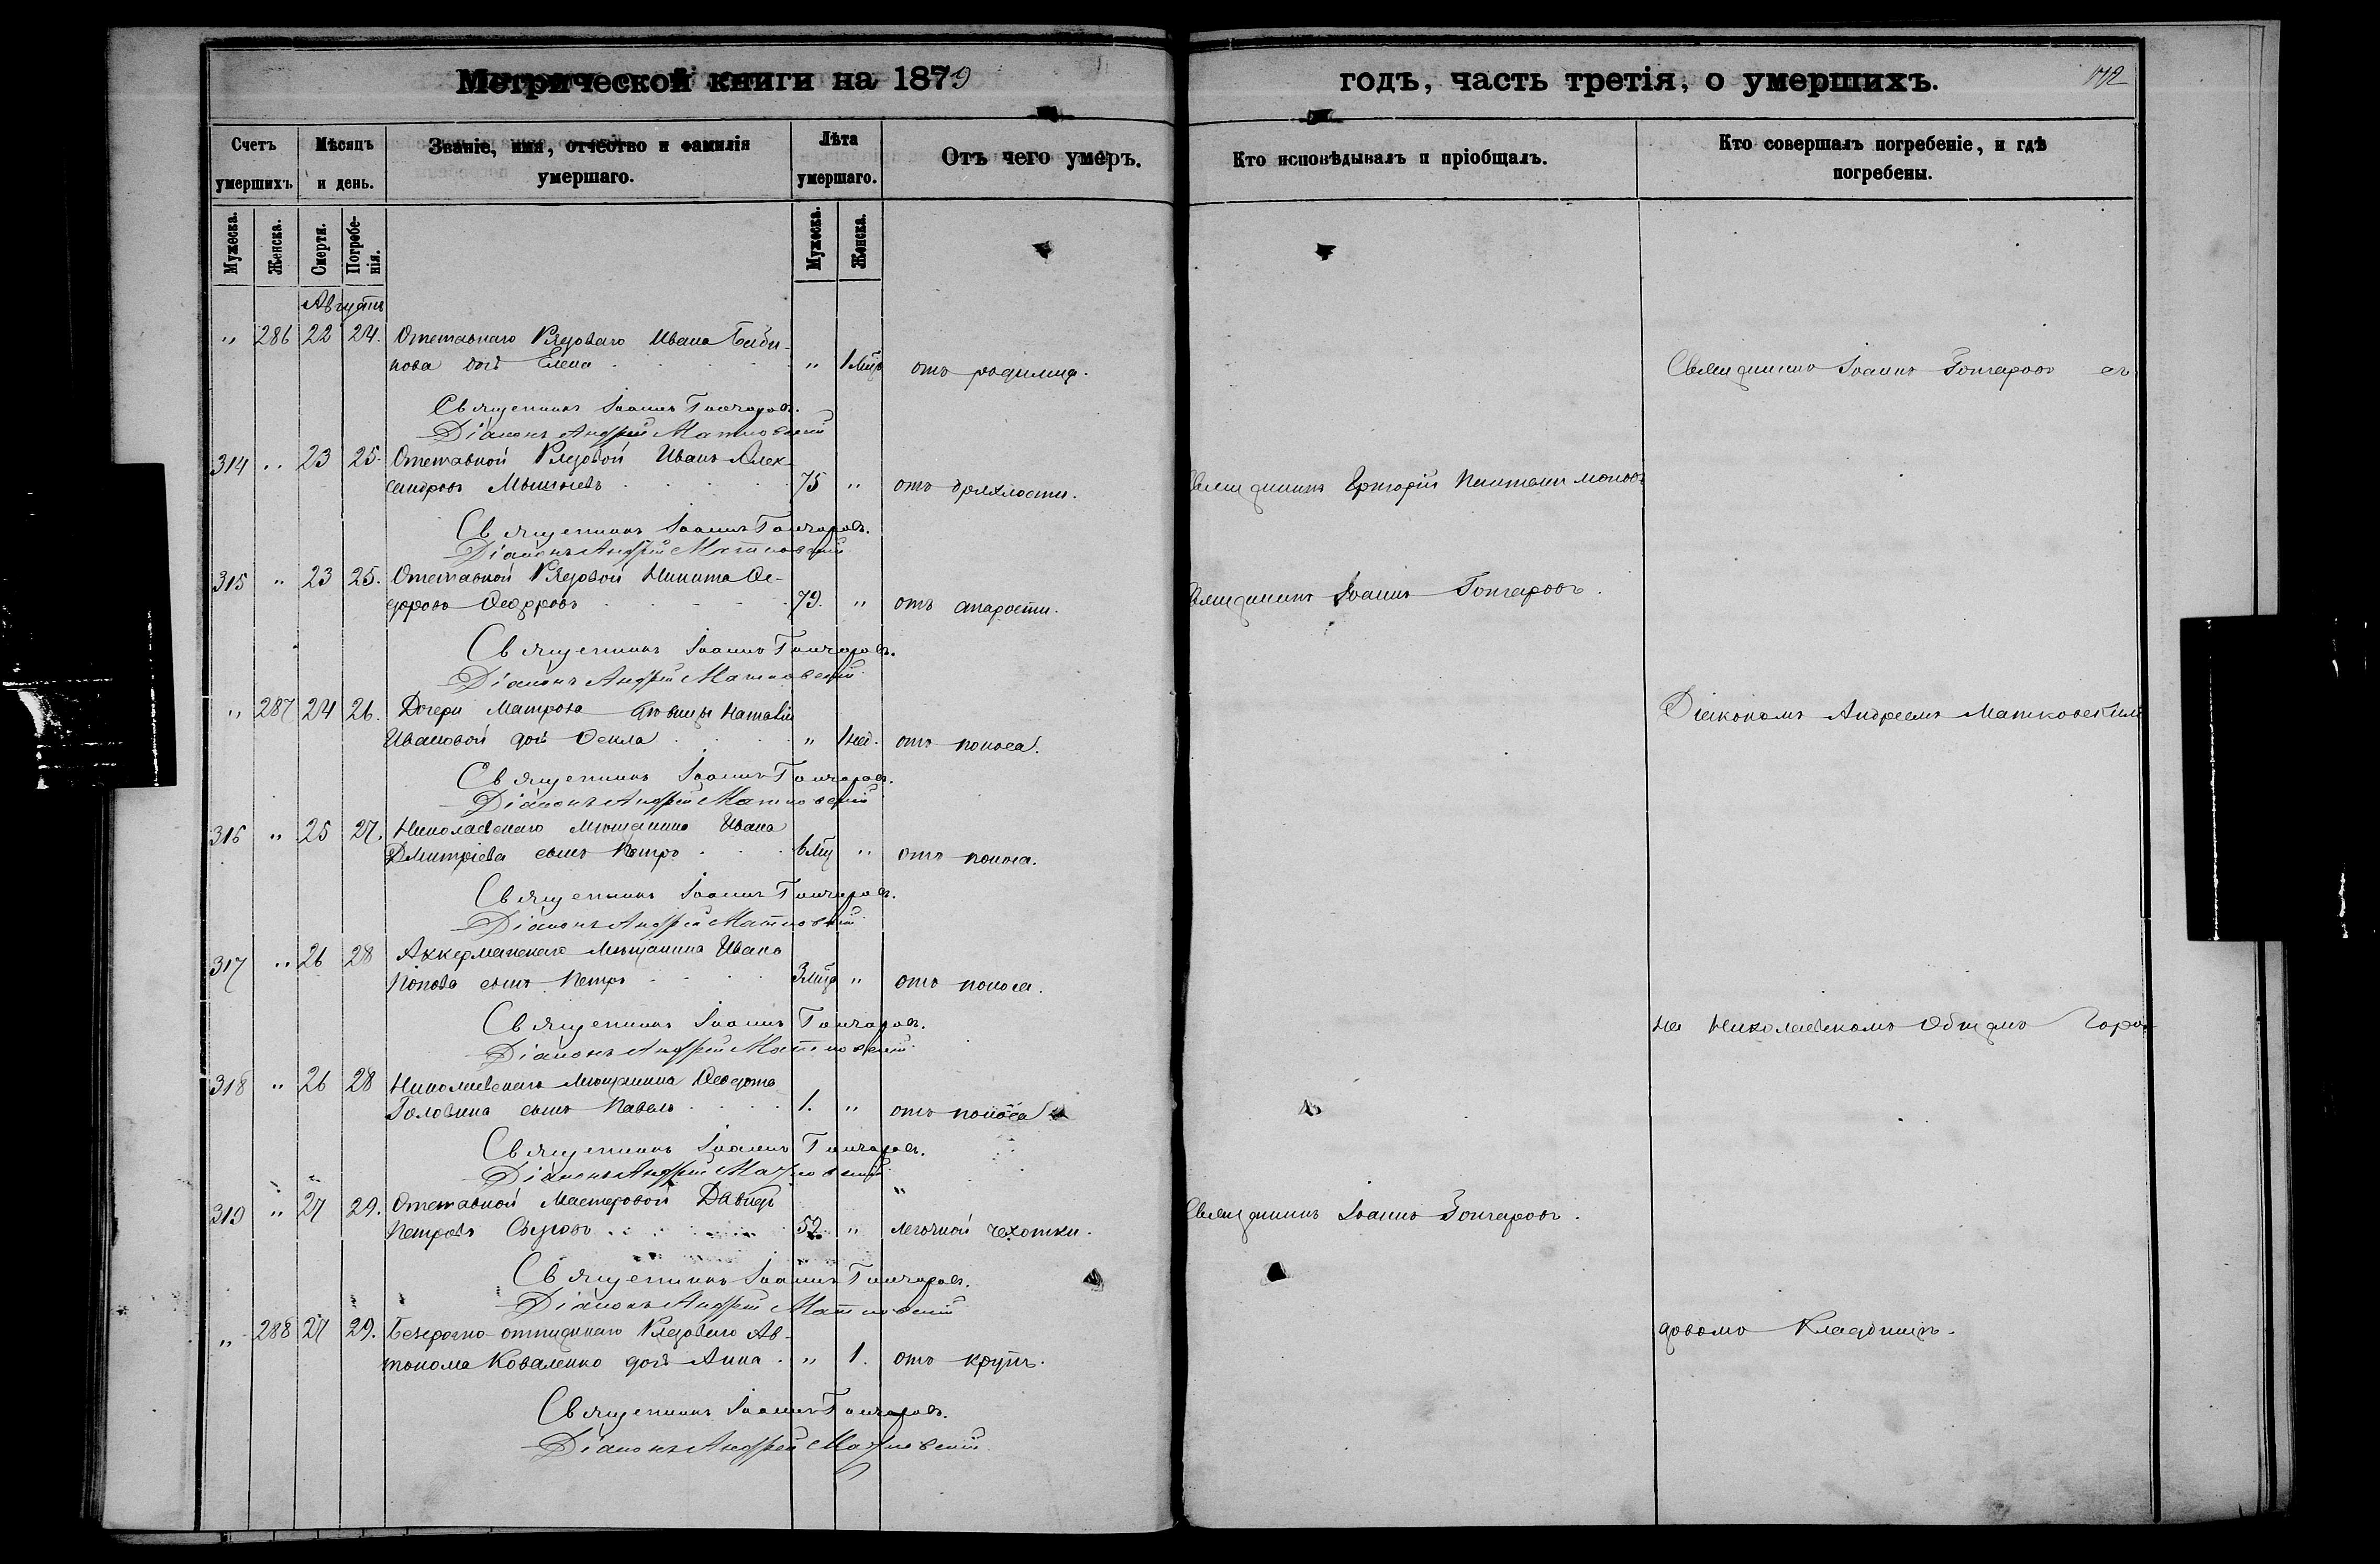 Метрической книги на 1879
годъ, часть третія, о умершихъ.
Счетъ умершихъ
Мѣсяцъ и день.
Званіе, имя, отчество и фамилія умершаго.
Лѣта умершаго.
Отъ чего умеръ.
Кто исповѣдывалъ и пріобщалъ.
Кто совершалъ погребеніе, и гдѣ погребены.
Мужеска.
Женска.
Смерти.
Погребенія.
Мужеска.
Женска.
Августъ
" 286 22 24. Отставнаго Рядоваго Ивана
нова дочь Елена " 1 мѣц. отъ родимца. Священникъ Іоаннъ Гончаровъ съ
Священникъ Іоаннъ Гончаровъ.
Діаконъ Андрей Матковскій
314 " 23 25. Отставной Рядовой Иванъ Алек-
сандровъ 75 " отъ дряхлости. Священникъ Григорій Пантелимоновъ
Священникъ Іоаннъ Гончаровъ.
Діаконъ Андрей Матковскій
315 " 23 25. Отставной Рядовой Никита Ѳе-
доровъ Ѳедоровъ 79. " отъ старости. Священникъ Іоаннъ Гончаровъ.
Священникъ Іоаннъ Гончаровъ.
Діаконъ Андрей Матковскій
" 287 24 26. Дочери Матроса дѣвицы Наталіи
Ивановой дочь Ѳекла " 1 нед. отъ поноса. Діакономъ Андреемъ Матковскимъ
Священникъ Іоаннъ Гончаровъ.
Діаконъ Андрей Матковскій
316 " 25 27. Николаевскаго Мѣщанина Ивана
Дмитріева сынъ Петръ 6 мц " отъ поноса.
Священникъ Іоаннъ Гончаровъ.
Діаконъ Андрей Матковскій
317 " 26 28 Аккерманскаго Мѣщанина Ивана
Попова сынъ Петръ 3 мѣца " отъ поноса.
Священникъ Іоаннъ Гончаровъ. на Николаевскомъ Общемъ Горо-
Діаконъ Андрей Матковскій
318 " 26 28 Николаевскаго Мѣщанина Ѳеодота
Головина сынъ Павелъ 1. " отъ поноса
Священникъ Іоаннъ Гончаровъ.
Діаконъ Андрей Матковскій
319 " 27 29. Отставной Мастеровой Давидъ
Петровъ 52. " легочной чехотки. Священникъ Іоаннъ Гончаровъ.
Священникъ Іоаннъ Гончаровъ.
Діаконъ Андрей Матковскій
" 288 27 29. Безсрочно-отпускнаго Рядоваго Ав-
тонома Коваленко дочь Анна " 1. отъ крупъ. довомъ Кладбищѣ.
Священникъ Іоаннъ Гончаровъ.
Діаконъ Андрей Матковскій